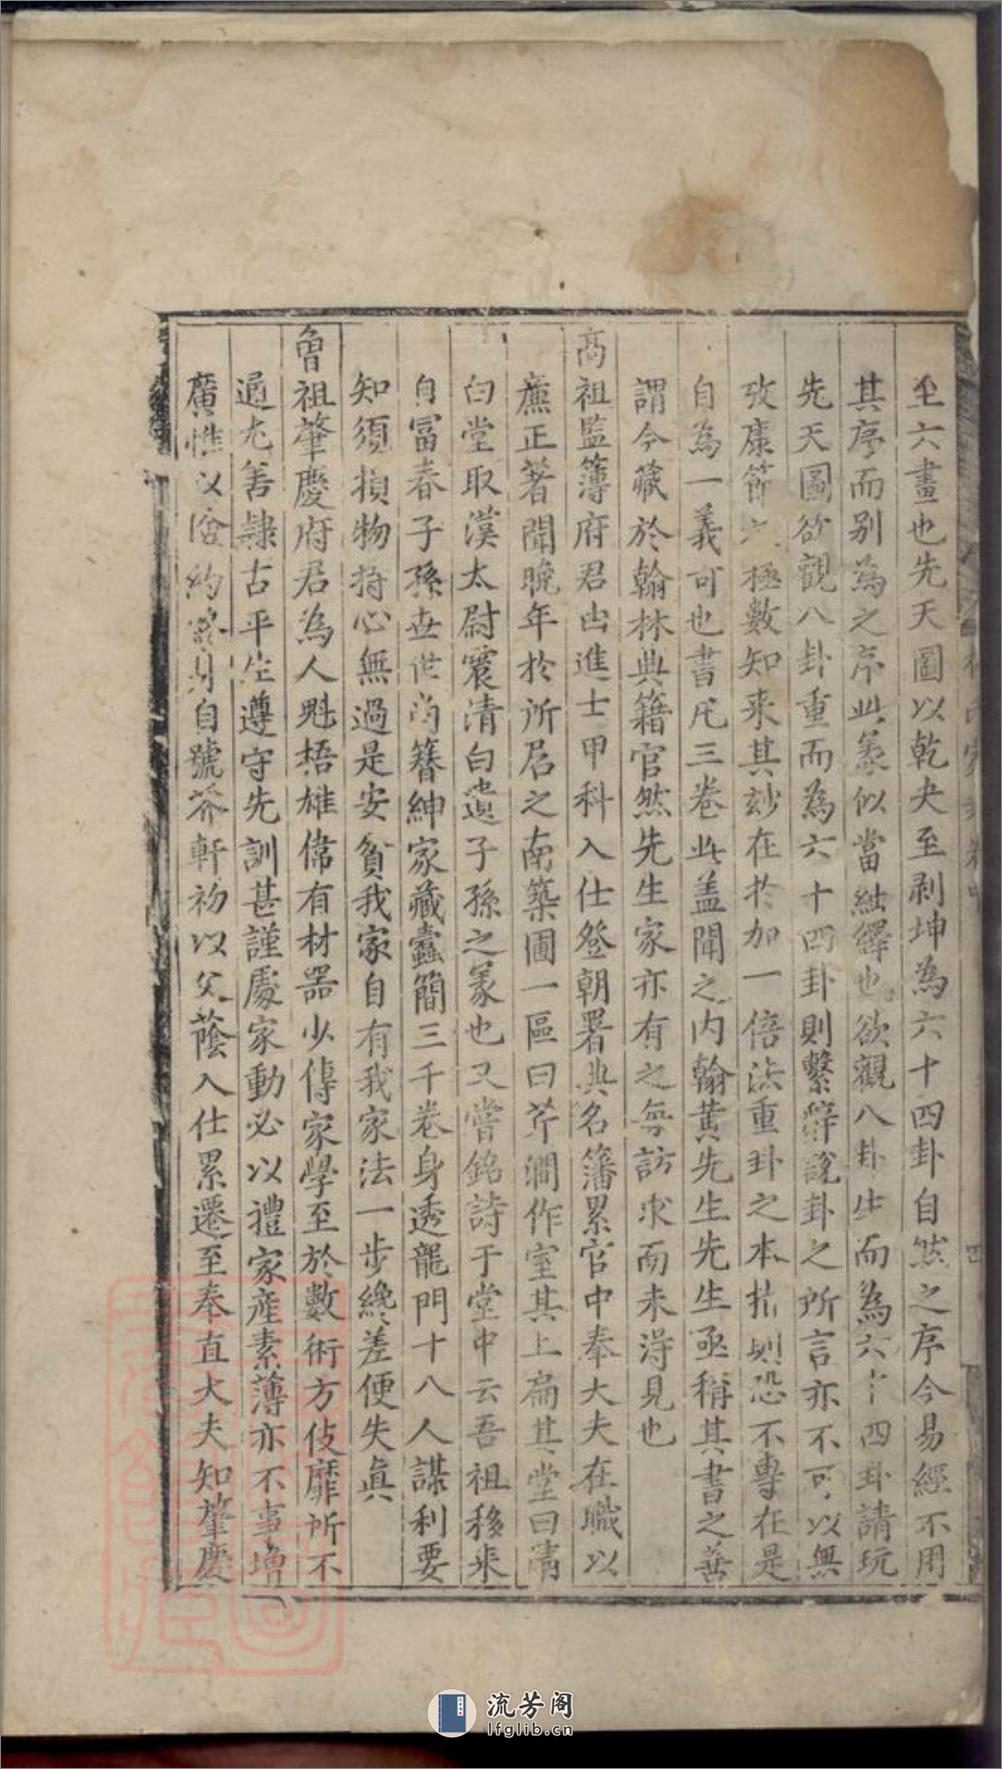 至六畫也先天圖以乾夬至剥坤為六十四卦自然之序今易經不用
其序而别為之序此義似當紬繹也欲觀八卦生而為六十四卦請玩
先天圖欲觀八卦重而為六十四卦則繫辭說卦之所言亦不可以無
攷康節極數知来其玅在扵加一倍法重卦之本指則恐不專在是
自為一義可也書凡三卷此盖聞之内翰黄先生先生亟稱其書之善
謂今藏於翰林典籍官然先生家亦有之每訪求而未淂見也
高祖監簿府君由進士甲科入仕登朝署典名籓累官中奉大夫在職以
廉正著聞晚年於所居之南築圃一區曰芹澗作室其上扁其堂曰清
白堂取漢太尉震清白遺子孫之義也又嘗銘詩于堂中云吾祖移来
自冨春子孫世世尚簪紳家藏蠹簡三千卷身透龍門十八人謀利要
知須損物持心無過是安貧我家自有我家法一步纔差便失真
曾祖肇慶府君為人魁梧雄偉有材器少傳家學至於數術方伎靡所不
通尤善隷古平生遵守先訓甚謹處家動必以禮家産素薄亦不事增
廣惟以儉約身自號芥軒初以父蔭入仕累遷至奉直大夫知肇慶
四
流芳阁
lfglib.cn